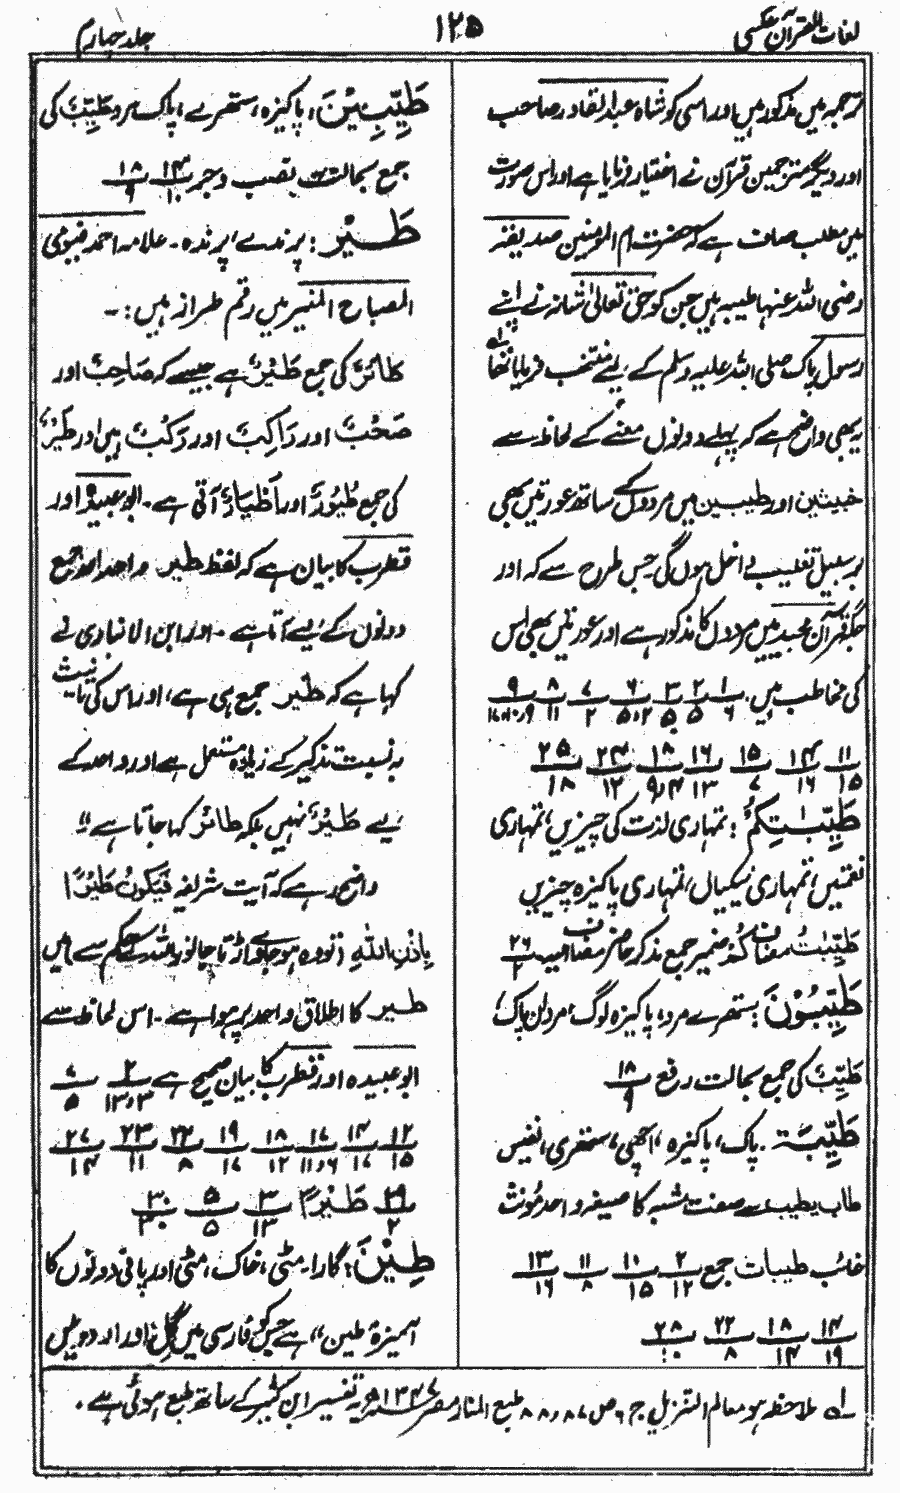 لغات القرآن عکسی
۱۲۵
جلد چہارم
ترجمہ میں مذکور ہیں اور اسی کو شاہ عبد القادر صاحب
اور دیگر مترجمین قرآن نے اختیار فرمایا ہے اور اس صورت
میں مطلب صاف ہے کہ حضرت ام المؤمنین صدیقہ
رضی اللہ عنہا طیبہ ہیں جن کو حق تعالیٰ شانہ نے اپنے
رسول پاک صلی اللہ علیہ وسلم کے لیے منتخب فرمایا تھا
یہ بھی واضح ہے کہ پہلے دونوں معنے کے لحاظ سے
خبیثین اور طیبین میں مردوں کے ساتھ عورتیں بھی
بر سبیل تغلیب داخل ہوں گی جس طرح سے کہ اور
جگہ قرآن مجید میں مردوں کا مذکور ہے اور عورتیں بھی اس
کی مخاطب ہیں۔ ۱/۶ ۲/۵ ۳/۵ ۶/۵،۲ ۷/۲ ۸/۱۱ ۹/۱۷،۱۰،۹
۱۱/۱۵ ۱۴/۱۶ ۱۵/۷ ۱۶/۱۳ ۱۸/۹،۴ ۲۴/۱۲ ۲۵/۱۸
طَیِّبٰتِکُمْ: تمہاری لذت کی چیزیں، تمہاری
نعمتیں، تمہاری نیکیاں، تمہاری پاکیزہ چیزیں
طَیِّبٰتُ مضاف کُمْ ضمیر جمع مذکر حاضر مضاف الیہ ۲۶/۲
طَیِّبُوْنَ: ستھرے مرد، پاکیزہ لوگ، مردان پاک،
طَیِّبٌ کی جمع بحالت رفع ۱۸/۹
طَیِّبَۃ: پاک، پاکیزہ، اچھی، ستھری، نفیس
طاب یطیب سے صفت مشبہ کا صیغہ واحد مؤنث
غائب طیبات جمع ۲/۱۲ ۱۰/۱۵ ۱۱/۸ ۱۳/۱۶
۱۴/۱۹ ۱۸/۱۴ ۲۲/۸ ۲۸/۱۰
طَیِّبِیْنَ: پاکیزہ، ستھرے، پاک مرد طَیِّبٌ کی
جمع بحالت نصب و جر ۱۴/۱۰ ۱۸/۹
طَیْر: پرندے، پرندہ۔ علامہ احمد فیومی
المصباح المنیر میں رقم طراز ہیں:۔
طَائِرٌ کی جمع طَیْرٌ ہے جیسے کہ صَاحِبٌ اور
صَحْبٌ اور رَاکِبٌ اور رَکْبٌ ہیں اور طَیْرٌ
کی جمع طُیُوْرٌ اور اَطْیَارٌ آتی ہے۔ ابو عبیدہ اور
قطرب کا بیان ہے کہ لفظ طیر واحد اور جمع
دونوں کے لیے آتا ہے۔ اور ابن الانباری نے
کہا ہے کہ طیر جمع ہی ہے، اور اس کی تانیث
بہ نسبت تذکیر کے زیادہ مستعمل ہے اور واحد کے
لیے طَیْرٌ نہیں بلکہ طائر کہا جاتا ہے"
واضح رہے کہ آیت شریفہ فَیَکُوْنُ طَیْرًا
بِاِذْنِ اللّٰہِ (تو وہ ہو جاوے اڑتا جانور اللہ کے حکم سے) میں
طیر کا اطلاق واحد پر ہوا ہے۔ اس لحاظ سے
ابو عبیدہ اور قطرب کا بیان صحیح ہے ۲/۱۳،۳ ۷/۵
۱۲/۱۵ ۱۴/۱۷ ۱۷/۱۱،۶ ۱۸/۱۲ ۱۹/۱۷ ۲۲/۸ ۲۳/۱۱ ۲۷/۱۴
۲۹/۲ طَیْرًا ۳/۱۳ ۵/۵ ۳۰/۳۰
طِیْن: گارا۔ مٹی، خاک، مٹی اور پانی دونوں کا
آمیزہ "طین" ہے جس کو فارسی میں گِل اور اردو میں
لہ ملاحظہ ہو معالم التنزیل ج ۶ ص ۸۷، ۸۸ طبع المنار مصر ۱۳۴۷ھ بر تفسیر ابن کثیر کے ساتھ طبع ہوئی ہے۔